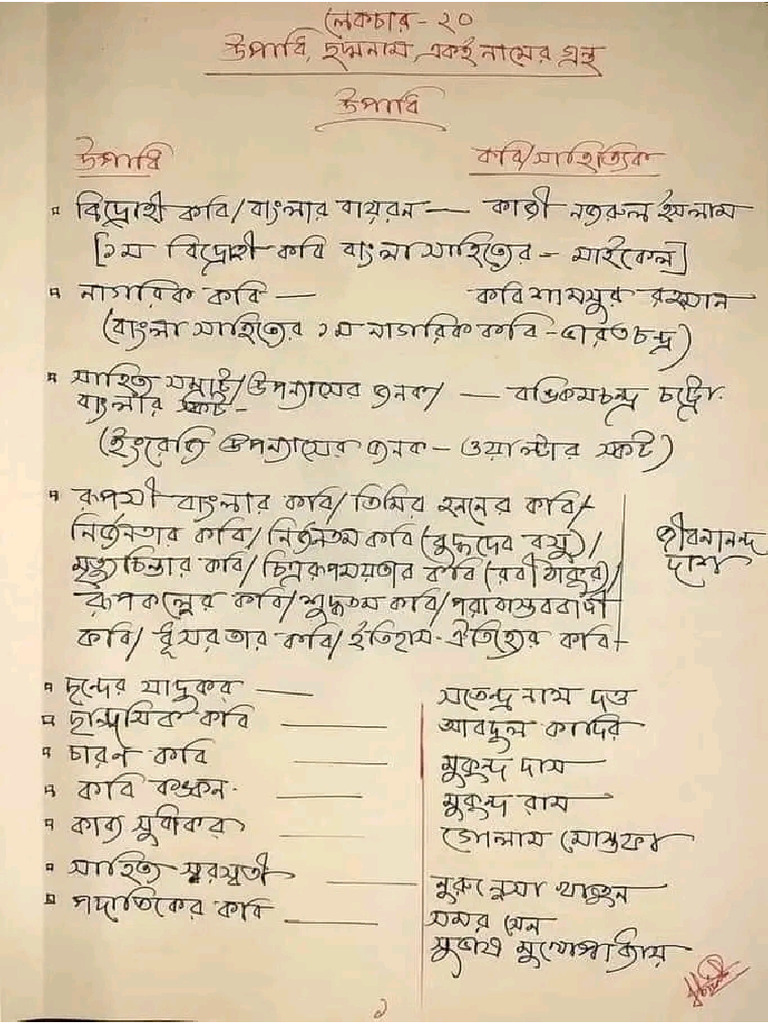 লেকচার - ২০
উপাধি, ছদ্মনাম, একই নামের গ্রন্থ
উপাধি
উপাধি কবি/সাহিত্যিক
▫ বিদ্রোহী কবি/বাংলার বায়রন — কাজী নজরুল ইসলাম
[১ম বিদ্রোহী কবি বাংলা সাহিত্যের - মাইকেল]
▫ নাগরিক কবি — কবি শামসুর রহমান
(বাংলা সাহিত্যের ১ম নাগরিক কবি - ভারতচন্দ্র)
▫ সাহিত্য সম্রাট/উপন্যাসের জনক/ — বঙ্কিমচন্দ্র চট্টো.
বাংলার স্কট -
(ইংরেজি উপন্যাসের জনক - ওয়াল্টার স্কট)
▫ রূপসী বাংলার কবি/ তিমির হননের কবি/
নির্জনতার কবি/ নির্জনতম কবি (বুদ্ধদেব বসু)/
মৃত্যুচিন্তার কবি/চিত্ররূপময়তার কবি (রবী ঠাকুর)/
রূপকল্পের কবি/শুদ্ধতম কবি/পরাবাস্তববাদী
কবি/ ধূসরতার কবি/ ইতিহাস-ঐতিহ্যের কবি
জীবনানন্দ
দাশ
▫ ছন্দের যাদুকর — সতেন্দ্র নাথ দত্ত
▫ ছান্দসিক কবি — আবদুল কাদির
▫ চারণ কবি — মুকুন্দ দাস
▫ কবি কঙ্কন. — মুকুন্দ রাম
▫ কাব্য সুধাকর — গোলাম মোস্তফা
▫ সাহিত্য স্বরস্বতী — নুরুন্নেসা খাতুন
▫ পদাতিকের কবি — সমর সেন
সুভাষ মুখোপাধ্যায়
১